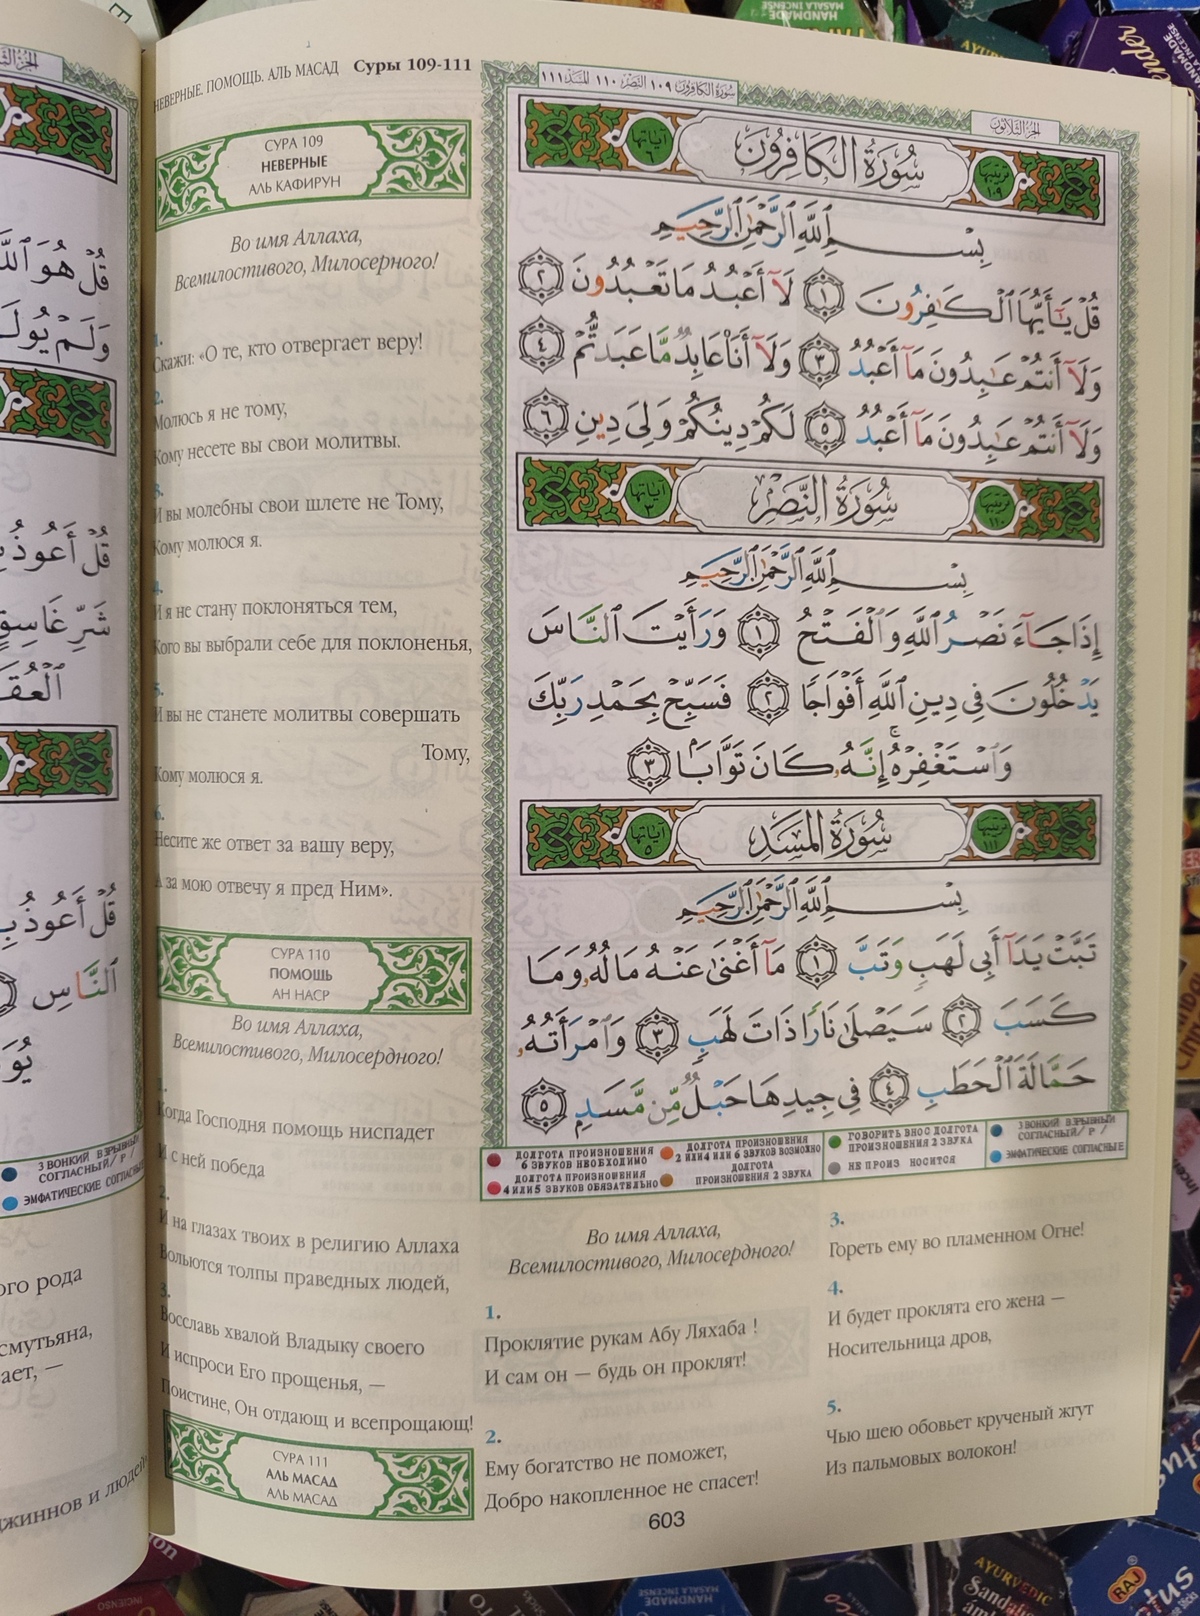 НЕВЕРНЫЕ. ПОМОЩЬ. АЛЬ МАСАД Суры 109-111
СУРА 109
НЕВЕРНЫЕ
АЛЬ КАФИРУН
Во имя Аллаха,
Всемилостивого, Милосерного!
1.
Скажи: «О те, кто отвергает веру!
2.
Молюсь я не тому,
Кому несете вы свои молитвы.
3.
И вы молебны свои шлете не Тому,
Кому молюся я.
4.
И я не стану поклоняться тем,
Кого вы выбрали себе для поклоненья,
5.
И вы не станете молитвы совершать
Тому,
Кому молюся я.
6.
Несите же ответ за вашу веру,
А за мою отвечу я пред Ним».
СУРА 110
ПОМОЩЬ
АН НАСР
Во имя Аллаха,
Всемилостивого, Милосердного!
1.
Когда Господня помощь ниспадет
И с ней победа
2.
И на глазах твоих в религию Аллаха
Вольются толпы праведных людей,
3.
Восславь хвалой Владыку своего
И испроси Его прощенья, —
Поистине, Он отдающ и всепрощающ!
СУРА 111
АЛЬ МАСАД
АЛЬ МАСАД
سُورَةُ الكَافِرُونَ ١٠٩ النَّصْر ١١٠ المَسَد ١١١
الجزءُ الثَّلَاثُون
آياتها ٦
سُورَةُ الكَافِرُونَ
ترتيبها ١٠٩
بِسْمِ ٱللَّهِ ٱلرَّحْمَٰنِ ٱلرَّحِيمِ
قُلْ يَٰٓأَيُّهَا ٱلْكَٰفِرُونَ ١ لَآ أَعْبُدُ مَا تَعْبُدُونَ ٢
وَلَآ أَنتُمْ عَٰبِدُونَ مَآ أَعْبُدُ ٣ وَلَآ أَنَا۠ عَابِدٌ مَّا عَبَدتُّمْ ٤
وَلَآ أَنتُمْ عَٰبِدُونَ مَآ أَعْبُدُ ٥ لَكُمْ دِينُكُمْ وَلِىَ دِينِ ٦
آياتها ٣
سُورَةُ النَّصْرِ
ترتيبها ١١٠
بِسْمِ ٱللَّهِ ٱلرَّحْمَٰنِ ٱلرَّحِيمِ
إِذَا جَآءَ نَصْرُ ٱللَّهِ وَٱلْفَتْحُ ١ وَرَأَيْتَ ٱلنَّاسَ
يَدْخُلُونَ فِى دِينِ ٱللَّهِ أَفْوَاجًا ٢ فَسَبِّحْ بِحَمْدِ رَبِّكَ
وَٱسْتَغْفِرْهُ ۚ إِنَّهُۥ كَانَ تَوَّابًۢا ٣
آياتها ٥
سُورَةُ المَسَدِ
ترتيبها ١١١
بِسْمِ ٱللَّهِ ٱلرَّحْمَٰنِ ٱلرَّحِيمِ
تَبَّتْ يَدَآ أَبِى لَهَبٍ وَتَبَّ ١ مَآ أَغْنَىٰ عَنْهُ مَالُهُۥ وَمَا
كَسَبَ ٢ سَيَصْلَىٰ نَارًا ذَاتَ لَهَبٍ ٣ وَٱمْرَأَتُهُۥ
حَمَّالَةَ ٱلْحَطَبِ ٤ فِى جِيدِهَا حَبْلٌ مِّن مَّسَدٍۭ ٥
ДОЛГОТА ПРОИЗНОШЕНИЯ
6 ЗВУКОВ НЕОБХОДИМО
ДОЛГОТА ПРОИЗНОШЕНИЯ
4 ИЛИ 5 ЗВУКОВ ОБЯЗАТЕЛЬНО
ДОЛГОТА ПРОИЗНОШЕНИЯ
2 ИЛИ 4 ИЛИ 6 ЗВУКОВ ВОЗМОЖНО
ДОЛГОТА
ПРОИЗНОШЕНИЯ 2 ЗВУКА
ГОВОРИТЬ В НОС ДОЛГОТА
ПРОИЗНОШЕНИЯ 2 ЗВУКА
НЕ ПРОИЗ НОСИТСЯ
ЗВОНКИЙ ВЗРЫВНЫЙ
СОГЛАСНЫЙ/ Р /
ЭМФАТИЧЕСКИЕ СОГЛАСНЫЕ
Во имя Аллаха,
Всемилостивого, Милосердного!
1.
Проклятие рукам Абу Ляхаба !
И сам он — будь он проклят!
2.
Ему богатство не поможет,
Добро накопленное не спасет!
3.
Гореть ему во пламенном Огне!
4.
И будет проклята его жена —
Носительница дров,
5.
Чью шею обовьет крученый жгут
Из пальмовых волокон!
603
قُلْ هُوَ
وَلَمْ
قُلْ أَعُوذُ
شَرِّ غَاسِقٍ
قُلْ أَعُوذُ
ٱلنَّاسِ
ЗВОНКИЙ ВЗРЫВНЫЙ
СОГЛАСНЫЙ/ Р /
ЭМФАТИЧЕСКИЕ СОГЛАСНЫЕ
рода
джиннов и людей
HANDMADE
MASALA INCENSE
AYURVEDIC
RAJ